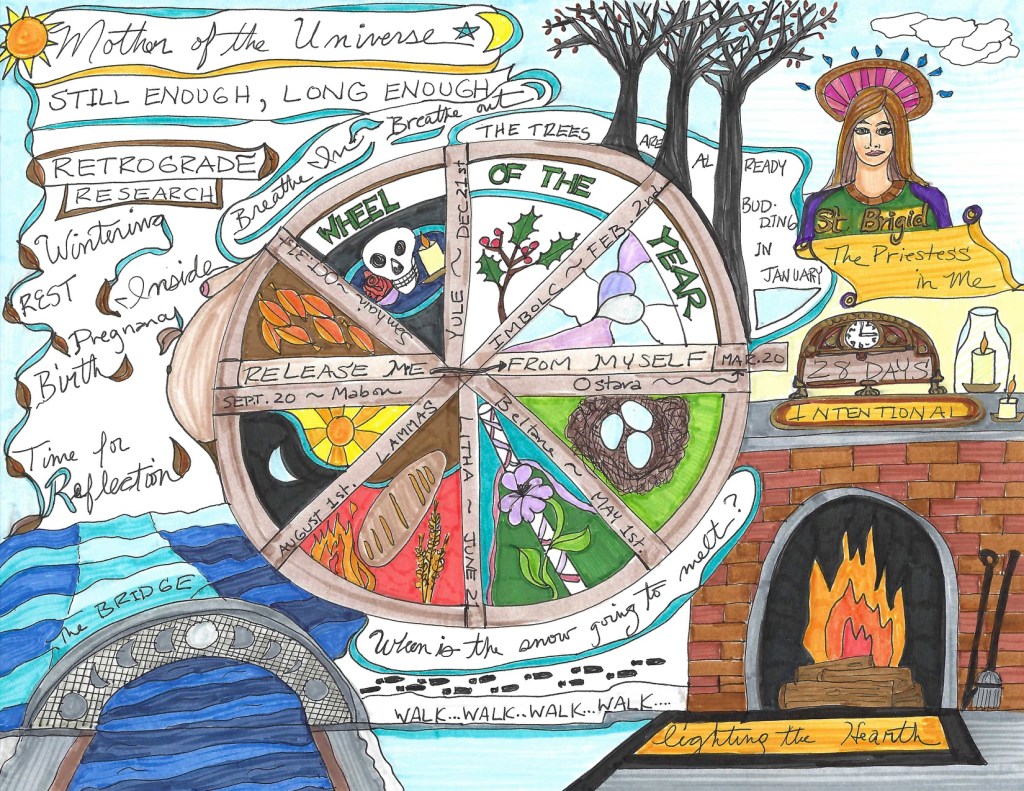 Mother of the Universe
STILL ENOUGH, LONG ENOUGH
Breathe In ~ Breathe out
RETROGRADE
RESEARCH
Wintering
REST
~Inside
Pregnancy
Birth
Time for
Reflection
THE TREES
ARE
AL
READY
BUD-
DING
IN
JANUARY
St Brigid
The Priestess
in Me
28 DAYS
INTENTIONAL
WHEEL
OF THE
YEAR
Samhain ~ Oct. 31
YULE ~ DEC. 21st
IMBOLC ~ FEB. 2nd
RELEASE ME
FROM MYSELF
MAR. 20
Ostara
SEPT. 20 ~ Mabon
LAMMAS
AUGUST 1st.
LITHA ~ JUNE 2
Beltane ~ MAY 1st.
When is the snow going to melt?
WALK...WALK..WALK...WALK....
The BRIDGE
lighting the Hearth